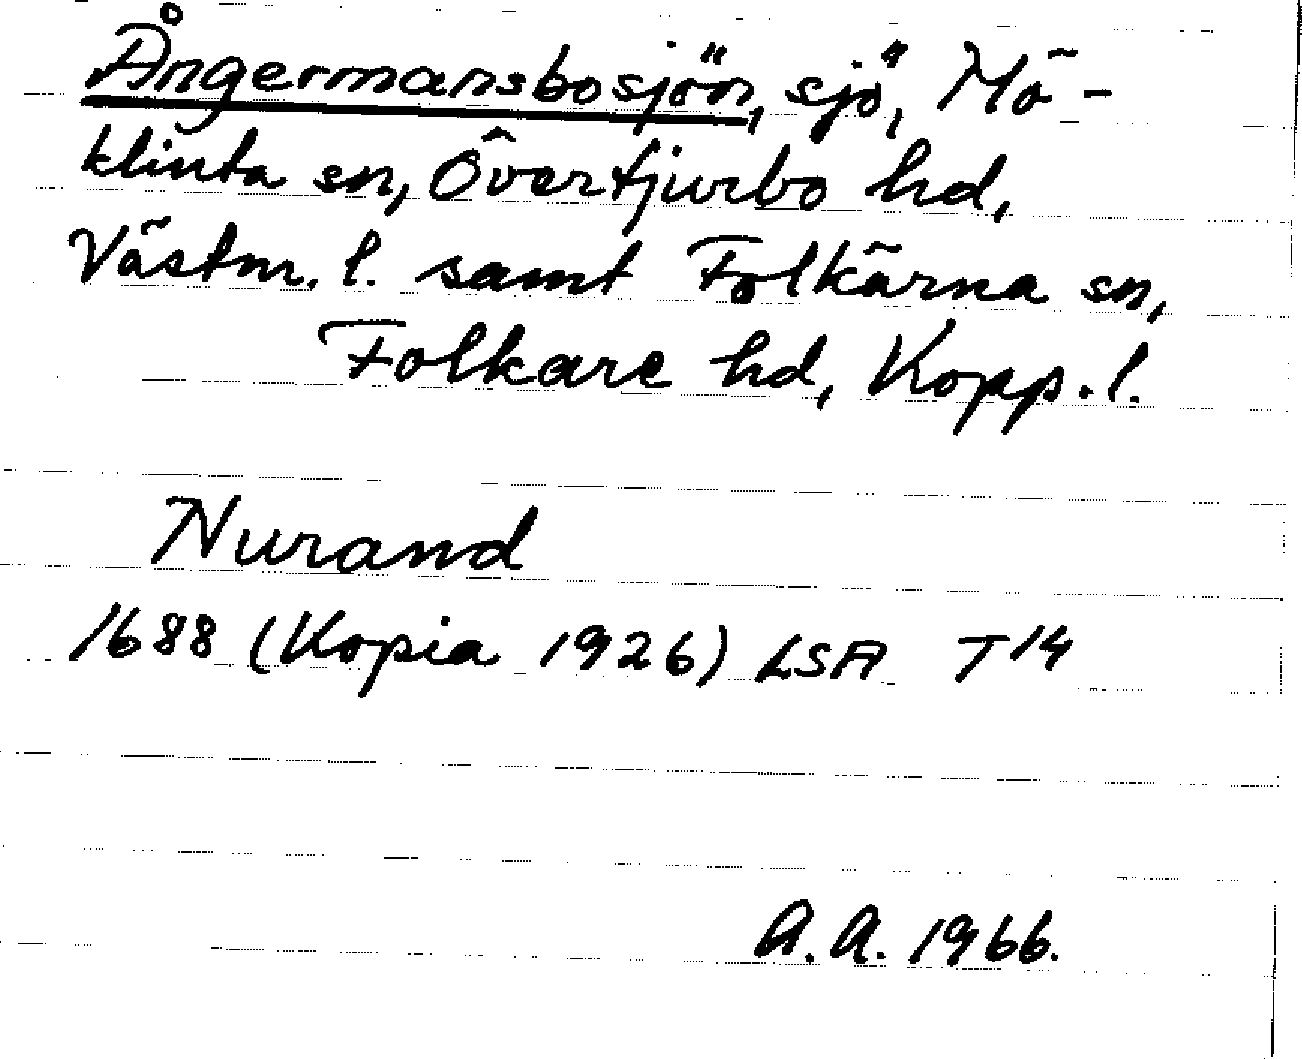 Ångermansbosjön, sjö, Mö-
klinta sn, Övertjurbo hd,
Västm. l. samt Folkärna sn,
Folkare hd, Kopp. l.
Nurand
1688 (Kopia 1926) LSA T 14
A. A. 1966.